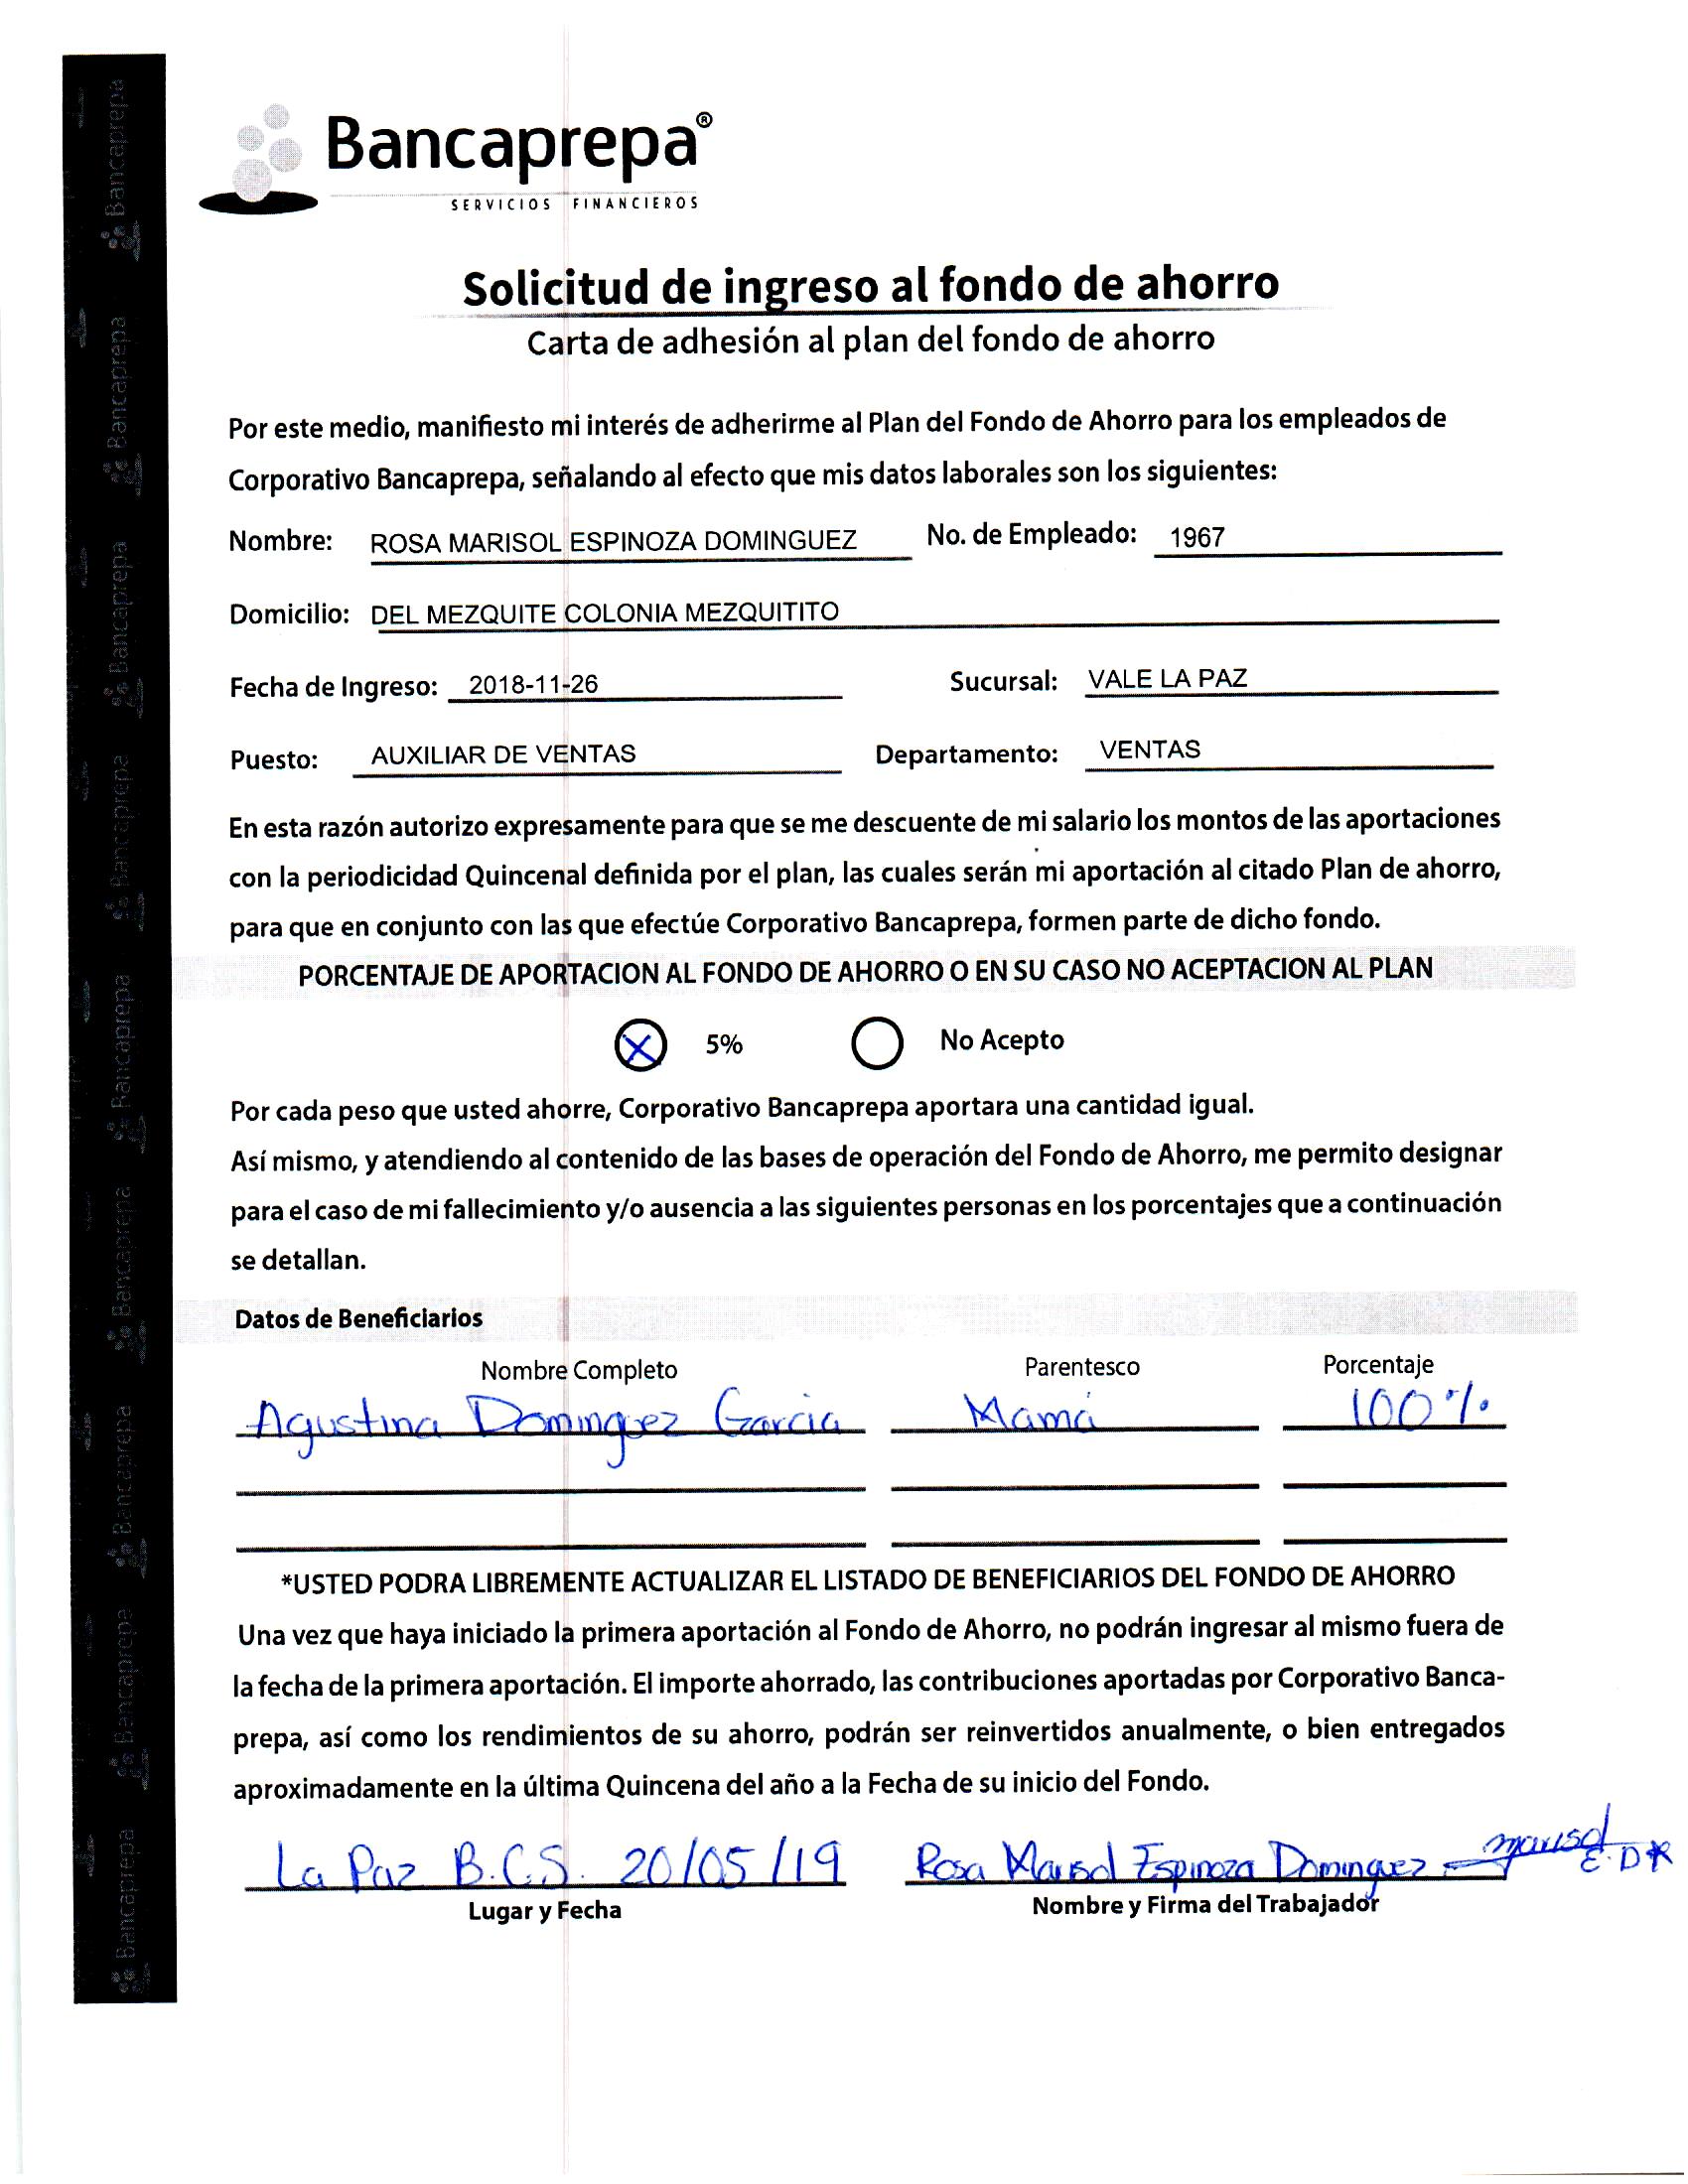 Bancaprepa®
SERVICIOS FINANCIEROS
Solicitud de ingreso al fondo de ahorro
Carta de adhesión al plan del fondo de ahorro
Por este medio, manifiesto mi interés de adherirme al Plan del Fondo de Ahorro para los empleados de
Corporativo Bancaprepa, señalando al efecto que mis datos laborales son los siguientes:
Nombre: ROSA MARISOL ESPINOZA DOMINGUEZ No. de Empleado: 1967
Domicilio: DEL MEZQUITE COLONIA MEZQUITITO
Fecha de Ingreso: 2018-11-26 Sucursal: VALE LA PAZ
Puesto: AUXILIAR DE VENTAS Departamento: VENTAS
En esta razón autorizo expresamente para que se me descuente de mi salario los montos de las aportaciones
con la periodicidad Quincenal definida por el plan, las cuales serán mi aportación al citado Plan de ahorro,
para que en conjunto con las que efectúe Corporativo Bancaprepa, formen parte de dicho fondo.
PORCENTAJE DE APORTACION AL FONDO DE AHORRO O EN SU CASO NO ACEPTACION AL PLAN
X 5% No Acepto
Por cada peso que usted ahorre, Corporativo Bancaprepa aportara una cantidad igual.
Así mismo, y atendiendo al contenido de las bases de operación del Fondo de Ahorro, me permito designar
para el caso de mi fallecimiento y/o ausencia a las siguientes personas en los porcentajes que a continuación
se detallan.
Datos de Beneficiarios
Nombre Completo Parentesco Porcentaje
Agustina Dominguez Garcia Mamá 100%
*USTED PODRA LIBREMENTE ACTUALIZAR EL LISTADO DE BENEFICIARIOS DEL FONDO DE AHORRO
Una vez que haya iniciado la primera aportación al Fondo de Ahorro, no podrán ingresar al mismo fuera de
la fecha de la primera aportación. El importe ahorrado, las contribuciones aportadas por Corporativo Banca-
prepa, así como los rendimientos de su ahorro, podrán ser reinvertidos anualmente, o bien entregados
aproximadamente en la última Quincena del año a la Fecha de su inicio del Fondo.
La Paz B.C.S. 20/05/19 Rosa Marisol Espinoza Dominguez Marisol E.DR
Lugar y Fecha Nombre y Firma del Trabajador
Bancaprepa
Bancaprepa
Bancaprepa
Bancaprepa
Bancaprepa
Bancaprepa
Bancaprepa
Bancaprepa
Bancaprepa